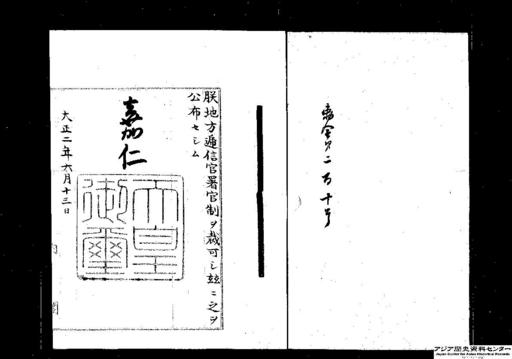 勅令第二百十号
朕地方逓信官署官制ヲ裁可シ玆ニ之ヲ
公布セシム
嘉仁
天皇
御璽
大正二年六月十三日
内閣
アジア歴史資料センター
Japan Center for Asian Historical Records